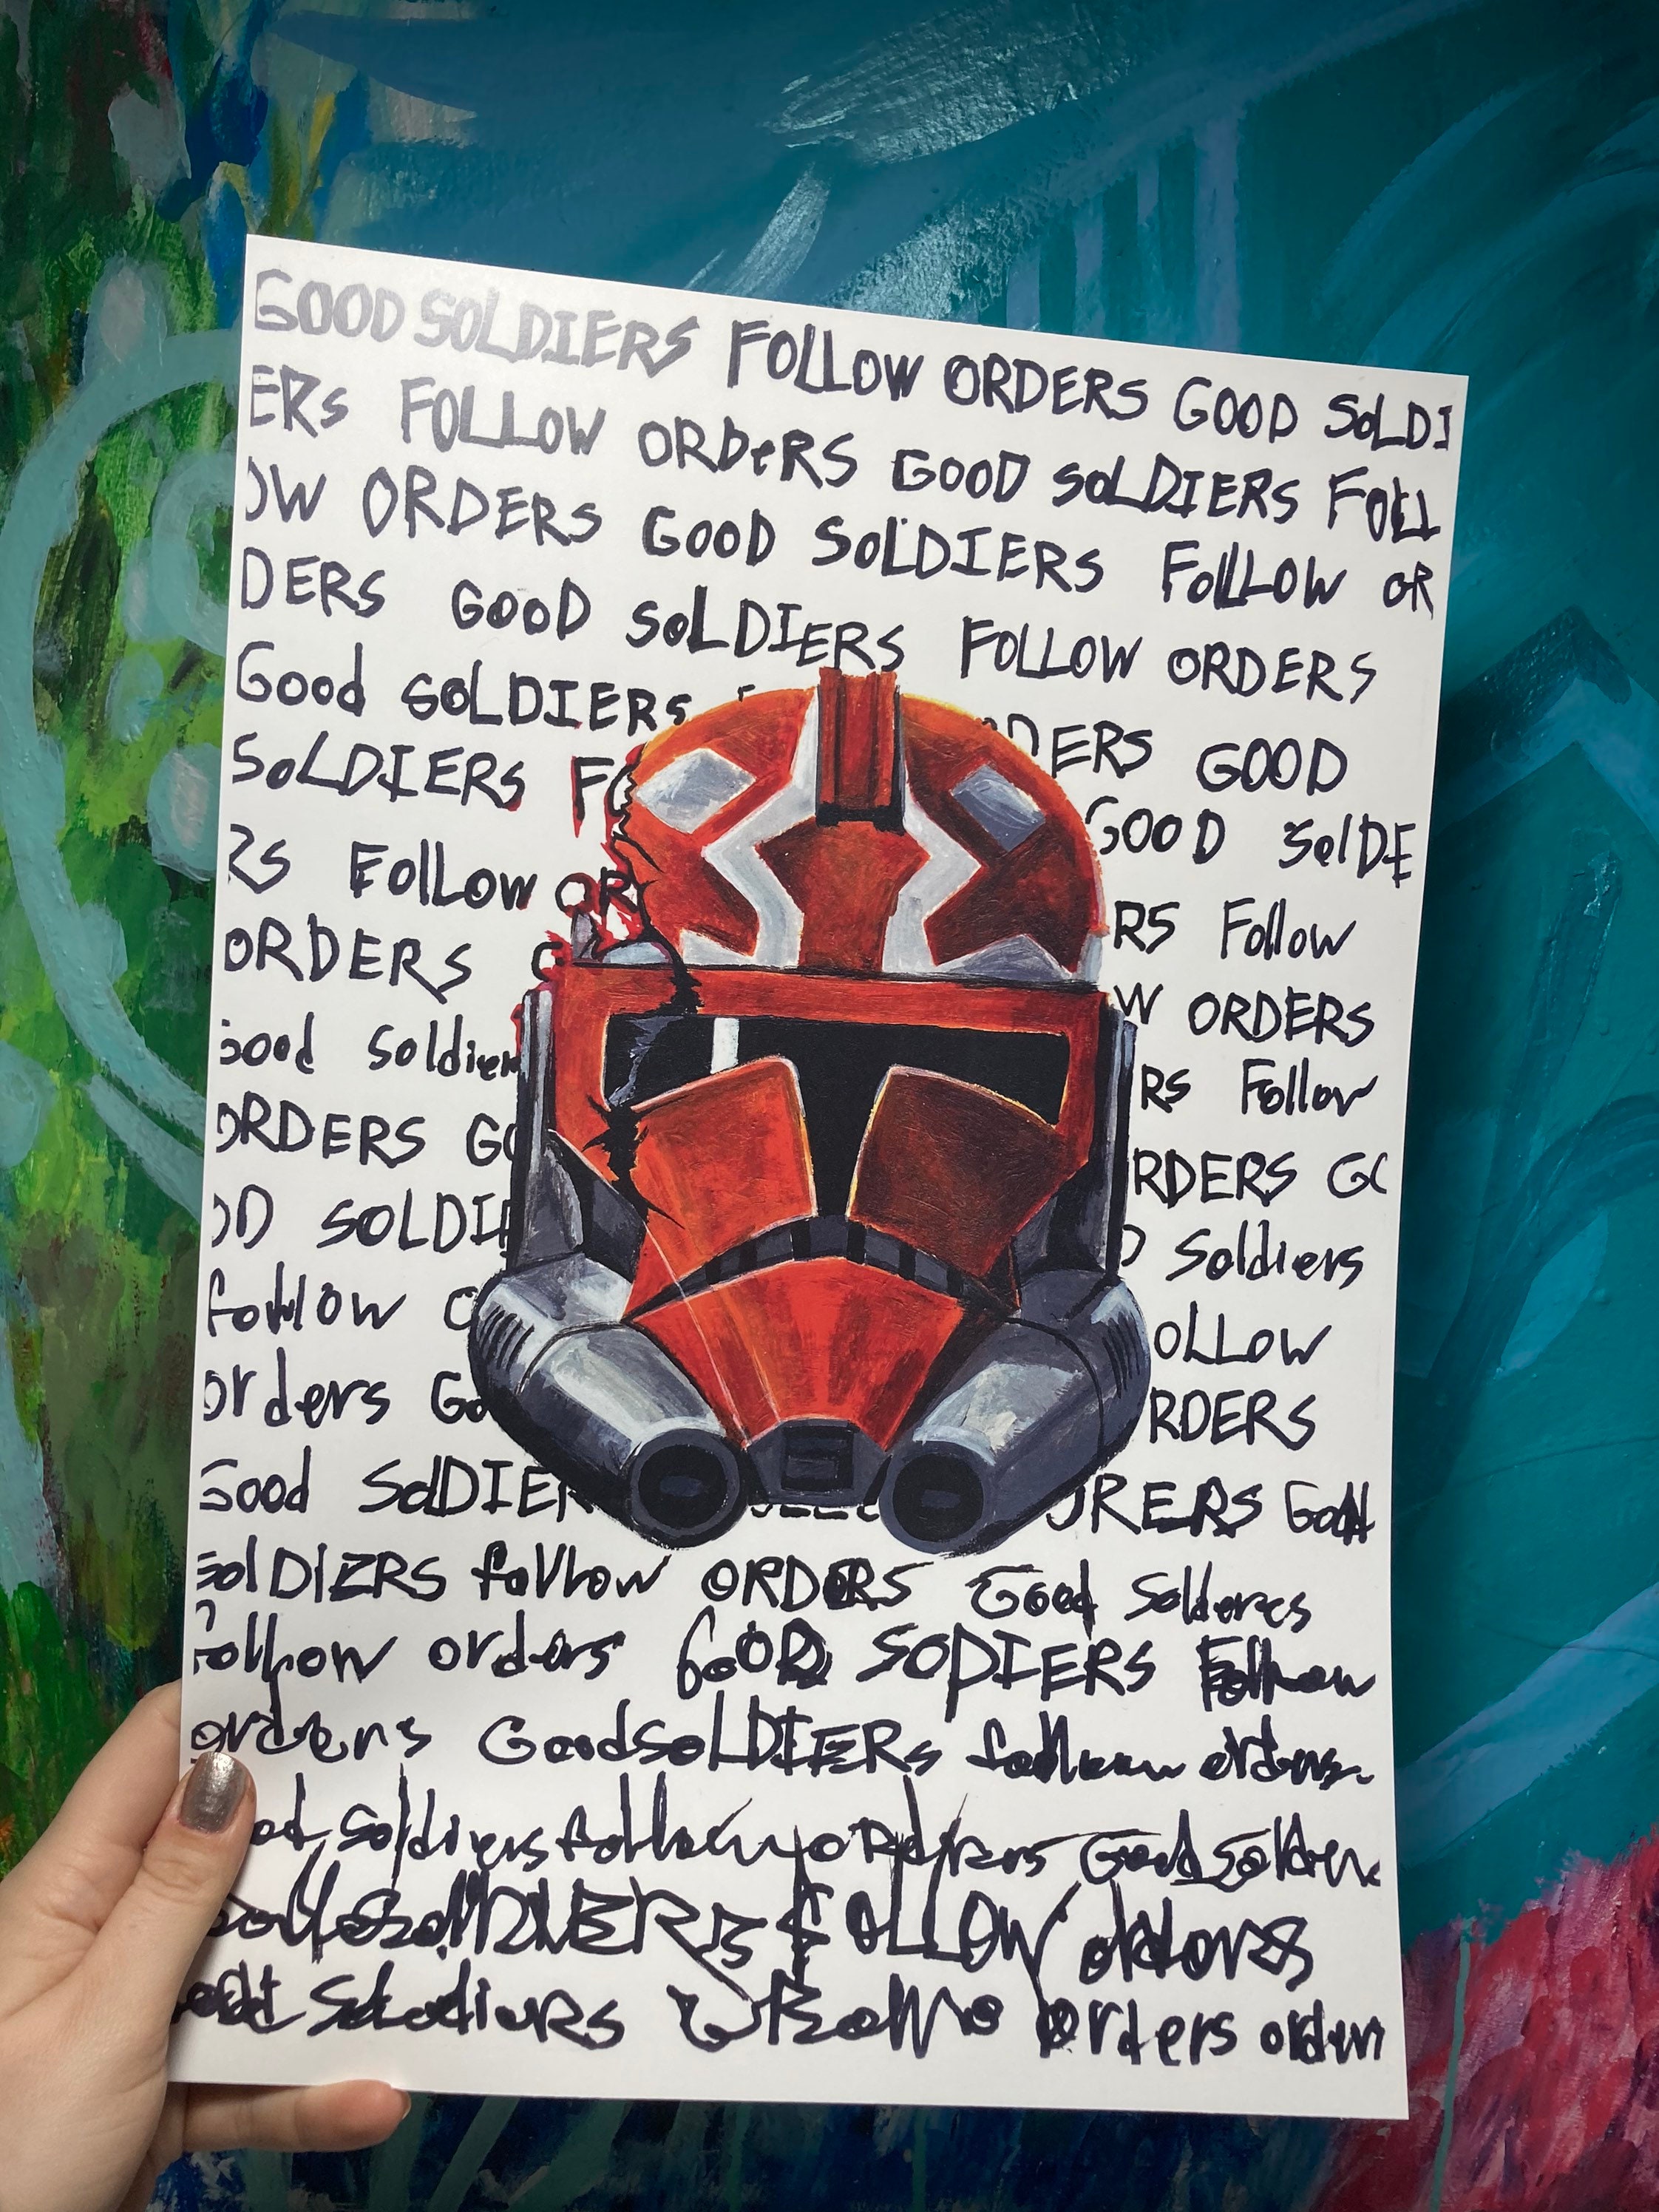 GOOD SOLDIERS FOLLOW ORDERS GOOD SOLDI
ERS FOLLOW ORDeRS GOOD SOLDIERS FOLL
OW ORDERS GOOD SOLDIERS FOLLOW OR
DERS GOOD SOLDIERS FOLLOW ORDERS
Good SOLDIERS DERS GOOD
SOLDIERS FO GOOD SolDE
RS Follow OR RS Follow
ORDERS G W ORDERS
Good Soldier RS Follow
ORDERS GO RDERS GO
OD SOLDIE D Soldiers
follow O OLLOW
orders Go RDERS
Good SolDIER RERS Good
SolDIERS follow ORDERS Good Solderes
Follow orders GOOD SODIERS Follow
orders Good SOLDIERs follow orders
od Soldiers follow orders Good soldier
SOLDIERS FOLLOW
Orders orders